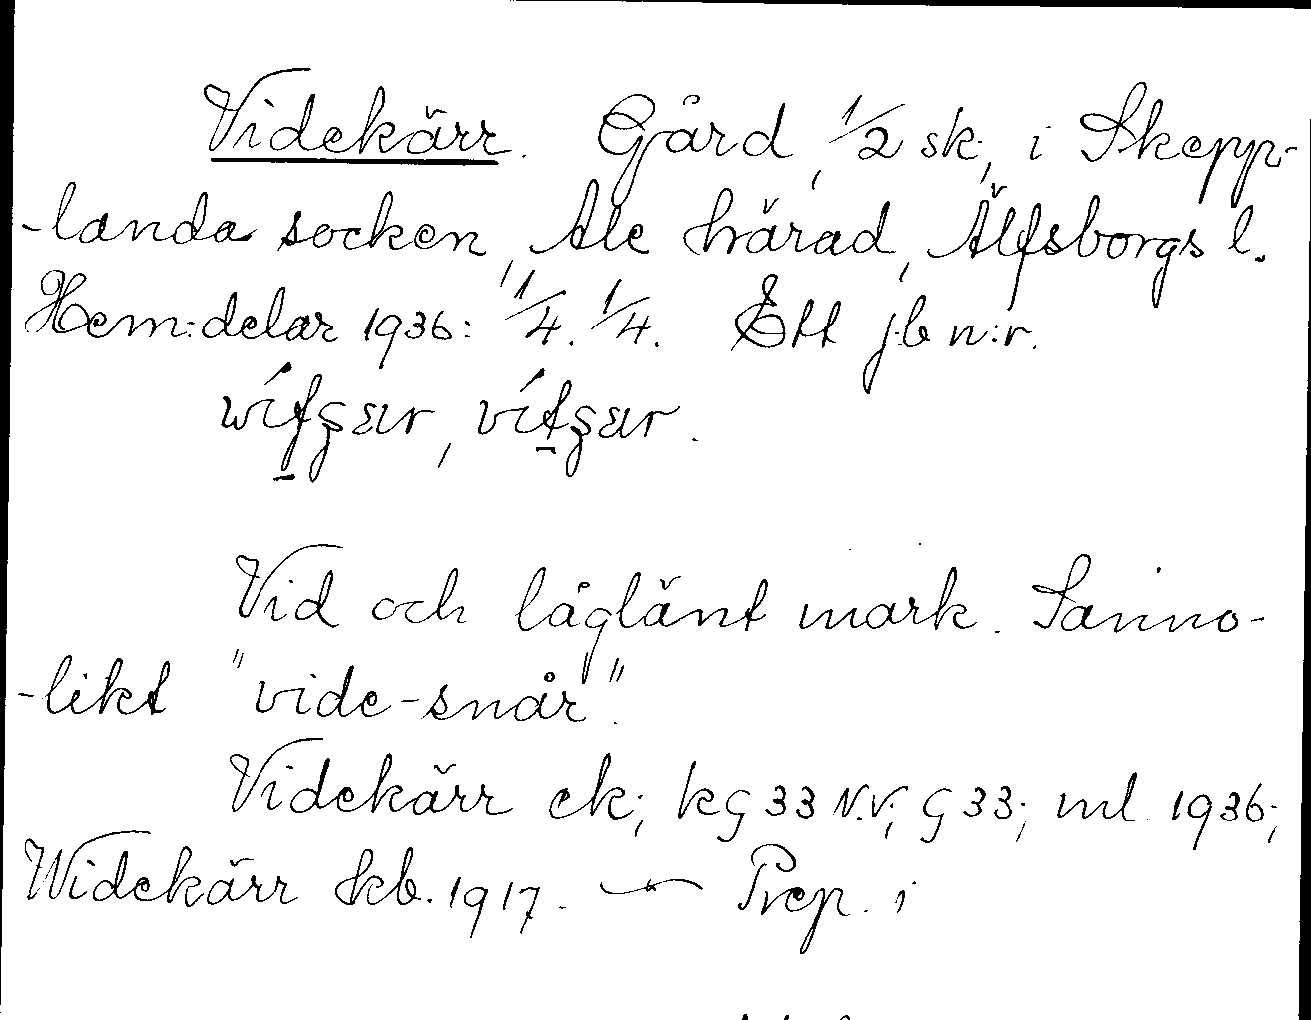 Videkärr. Gård, 1/2 sk, i Skepp-
-landa socken, Ale härad, Älfsborgs l.
Hem:delar 1936: 1/4. 1/4. Ett jb n:r.

Vid och låglänt mark. Sanno-
-likt "vide-snår".
Videkärr ek; kG 33 N.V; G 33; ml 1936;
Widekärr kb. 1917. — Prep. i